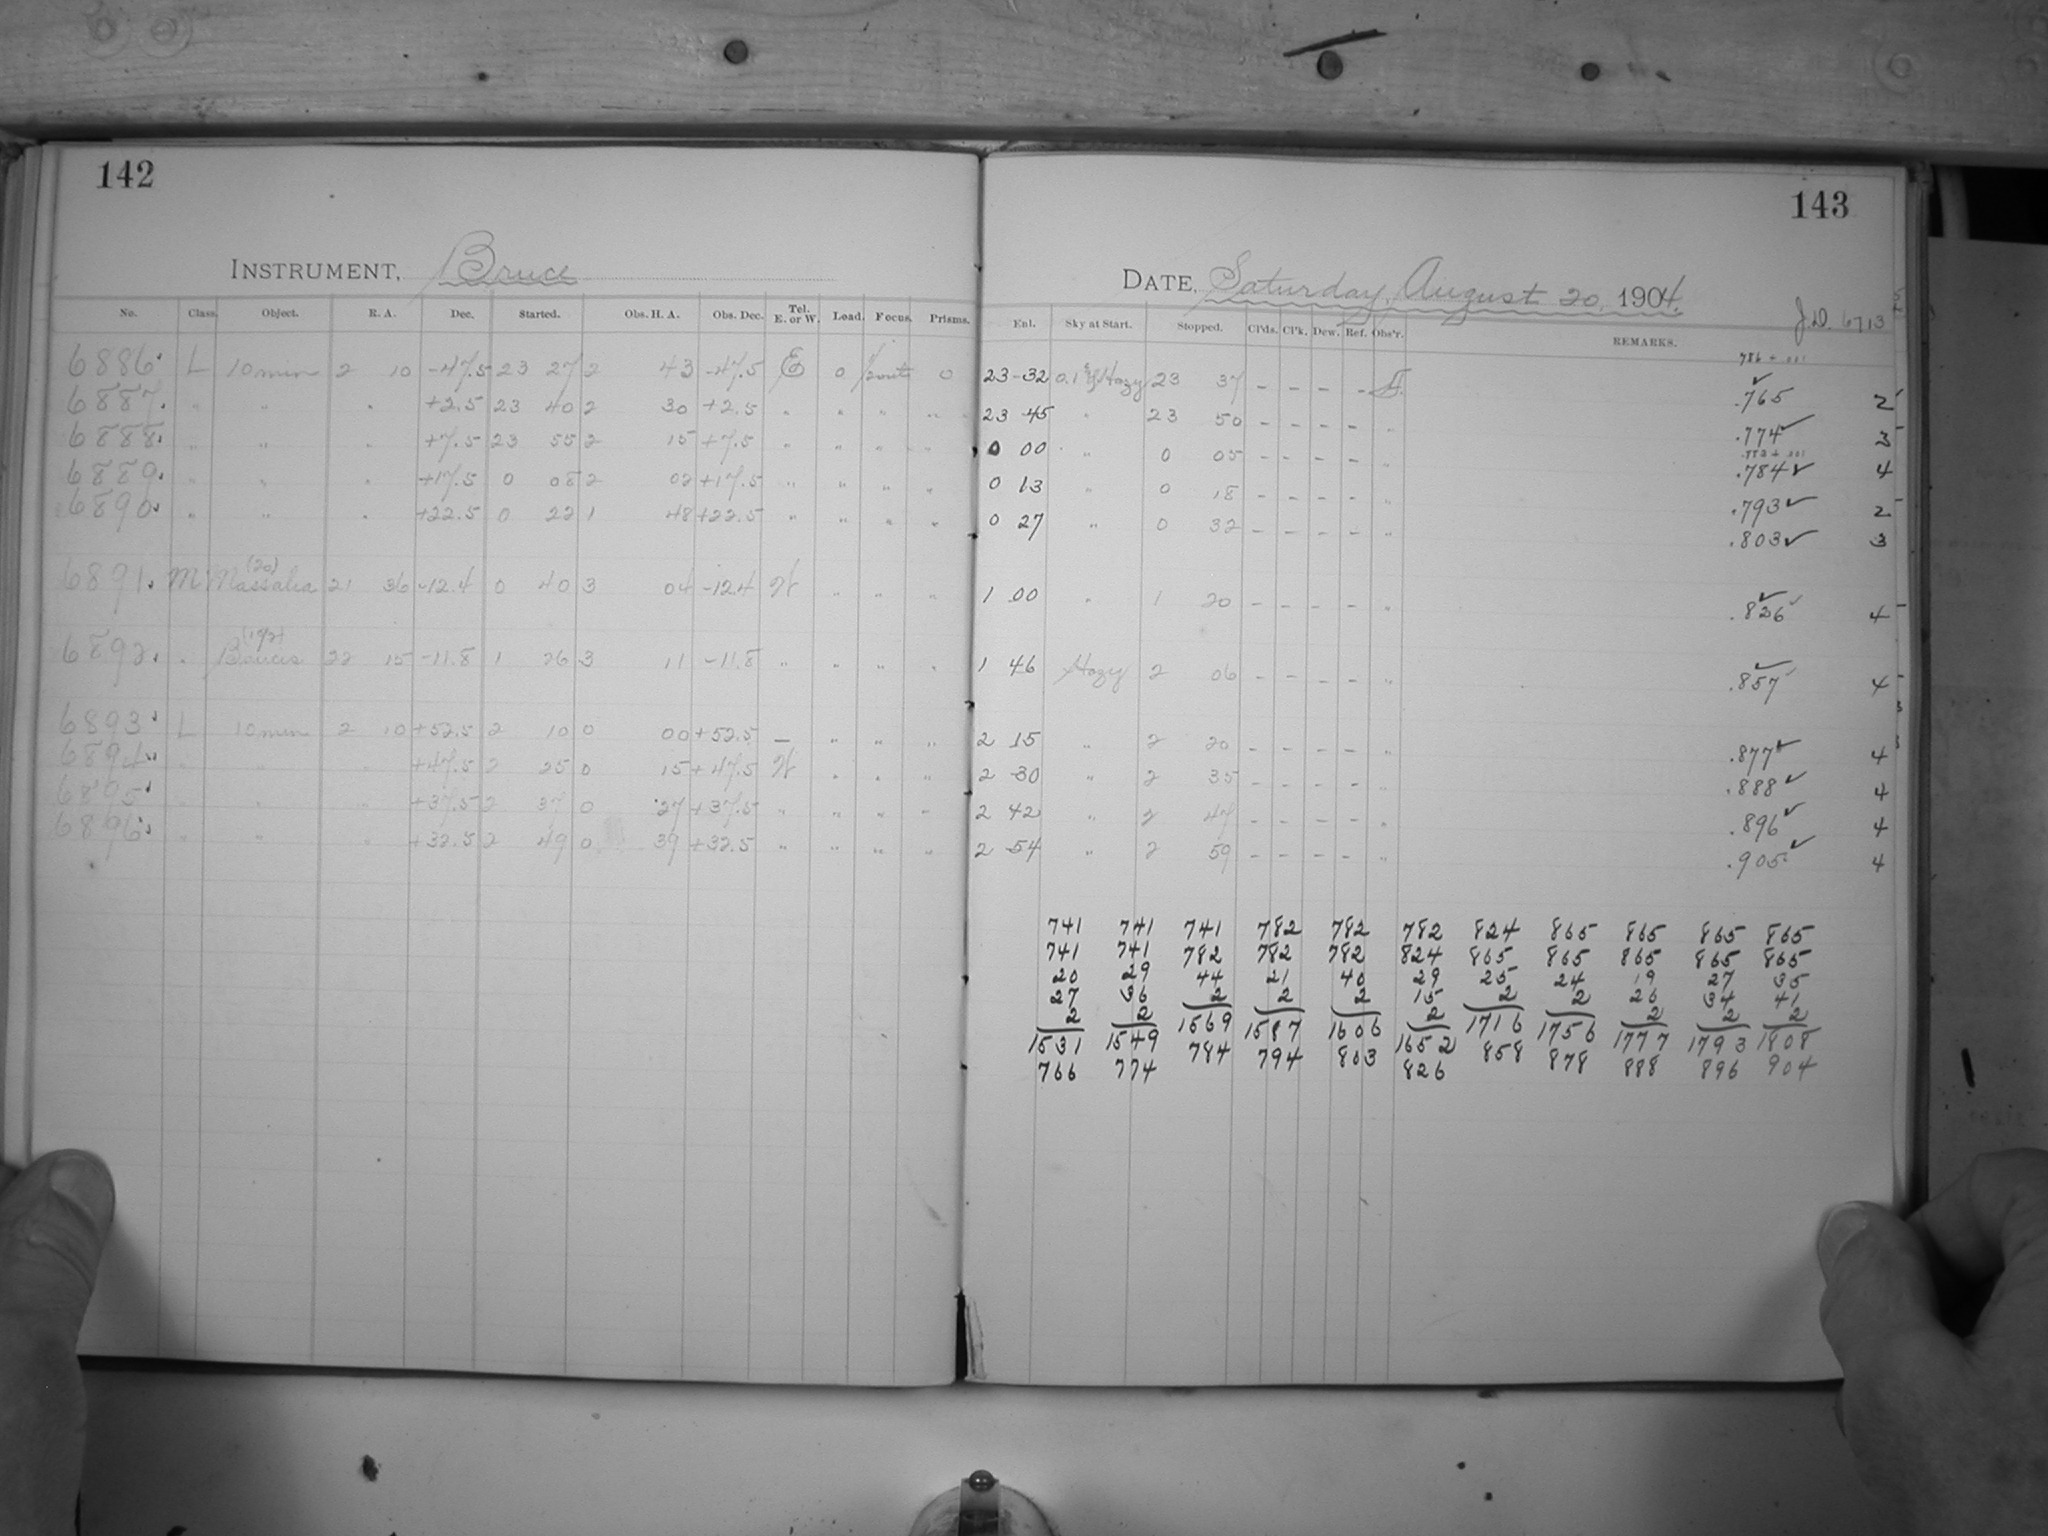 142
143
INSTRUMENT, Bruce
DATE, Saturday, August 20, 1904.
J.D. 6713
No. Class. Object. R. A. Dec. Started. Obs. H. A. Obs. Dec. Tel. E. or W. Load. Focus. Prisms.
Enl. Sky at Start. Stopped. Cl'ds. Cl'k. Dew. Ref. Obs'r. REMARKS.
6886 L 10 min 2 10 -47.5 23 27 2 43 -47.5 E 0 0 23-32 0.1 Hazy 23 37 - - - - .765 2
6887. " " " +2.5 23 40 2 30 +2.5 " " " " 23 45 " 23 50 - - - - " .774 3
6888. " " " +7.5 23 55 2 15 +7.5 " " " " 0 00 " 0 05 - - - - " .784 4
6889. " " " +17.5 0 08 2 02 +17.5 " " " " 0 13 " 0 18 - - - - " .793 2
6890. " " " +22.5 0 22 1 48 +22.5 " " " " 0 27 " 0 32 - - - - " .803 3
(20)
6891. M Massalia 21 36 -12.4 0 40 3 04 -12.4 W " " " 1 00 " 1 20 - - - - " .826 4
(172)
6892. " Baucis 22 15 -11.8 1 26 3 11 -11.8 " " " " 1 46 Hazy 2 06 - - - - " .857 4
6893 L 10 min 2 10 +52.5 2 10 0 00 +52.5 - " " " 2 15 " 2 20 - - - - " .877 4
6894 " " " +47.5 2 25 0 15 +47.5 W " " " 2 30 " 2 35 - - - - " .888 4
6895 " " " +37.5 2 37 0 27 +37.5 " " " " 2 42 " 2 47 - - - - " .896 4
6896 " " " +32.5 2 49 0 39 +32.5 " " " " 2 54 " 2 59 - - - - " .905 4
741 741 741 782 782 782 824 865 865 865 865
741 741 782 782 782 824 865 865 865 865 865
20 29 44 21 40 29 25 24 19 27 35
27 36 2 2 2 15 2 2 26 34 41
2 2 1569 1587 1606 2 1716 1756 2 2 2
1531 1549 784 794 803 1652 858 878 1777 1793 1808
766 774 826 888 896 904